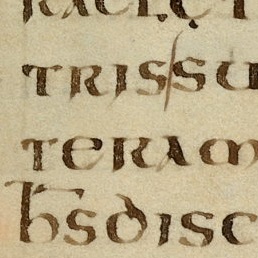 trissu
teram
h̅sdisc